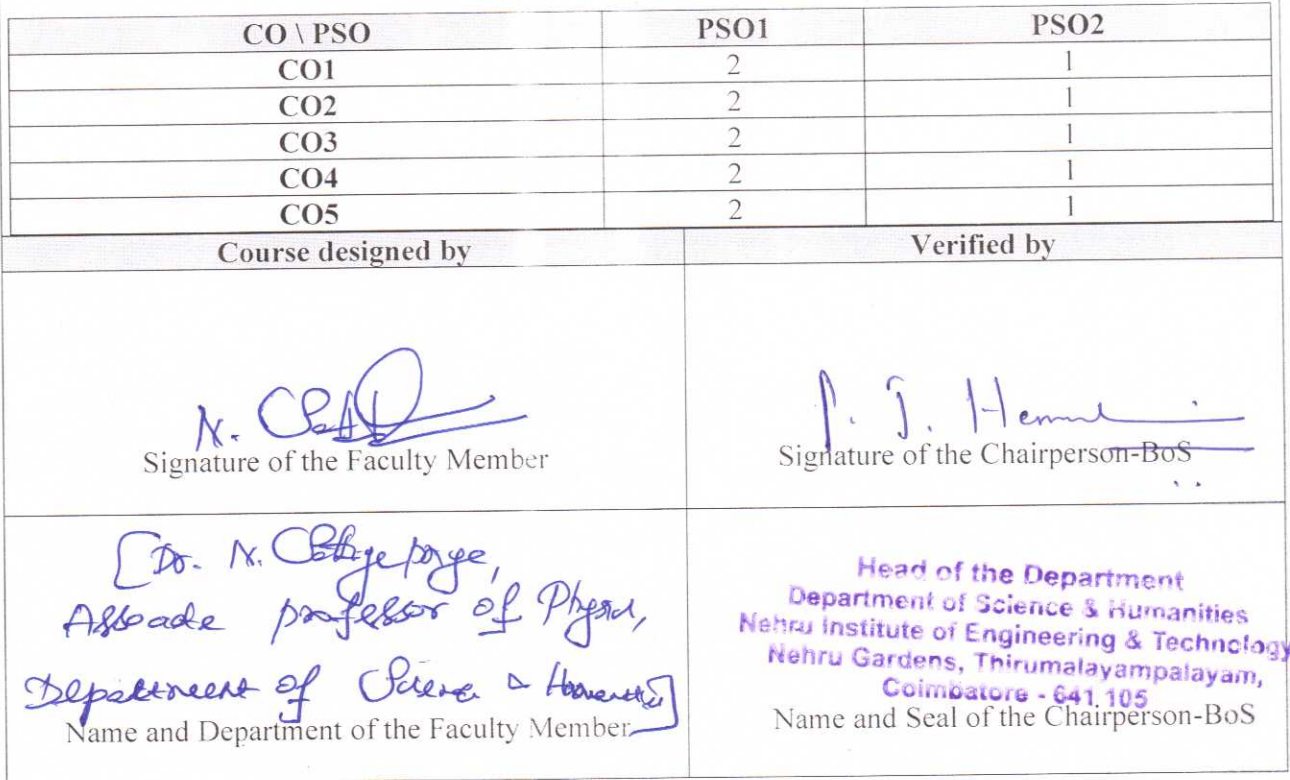 CO \ PSO PSO1 PSO2
CO1 2 1
CO2 2 1
CO3 2 1
CO4 2 1
CO5 2 1
Course designed by Verified by
N.
P. J.
Signature of the Faculty Member Signature of the Chairperson-BoS
[Dr. N.
Assoade professor of Physics,
Department of Science & Humanities]
Name and Department of the Faculty Member
Head of the Department
Department of Science & Humanities
Nehru Institute of Engineering & Technology
Nehru Gardens, Thirumalayampalayam,
Coimbatore - 641 105
Name and Seal of the Chairperson-BoS